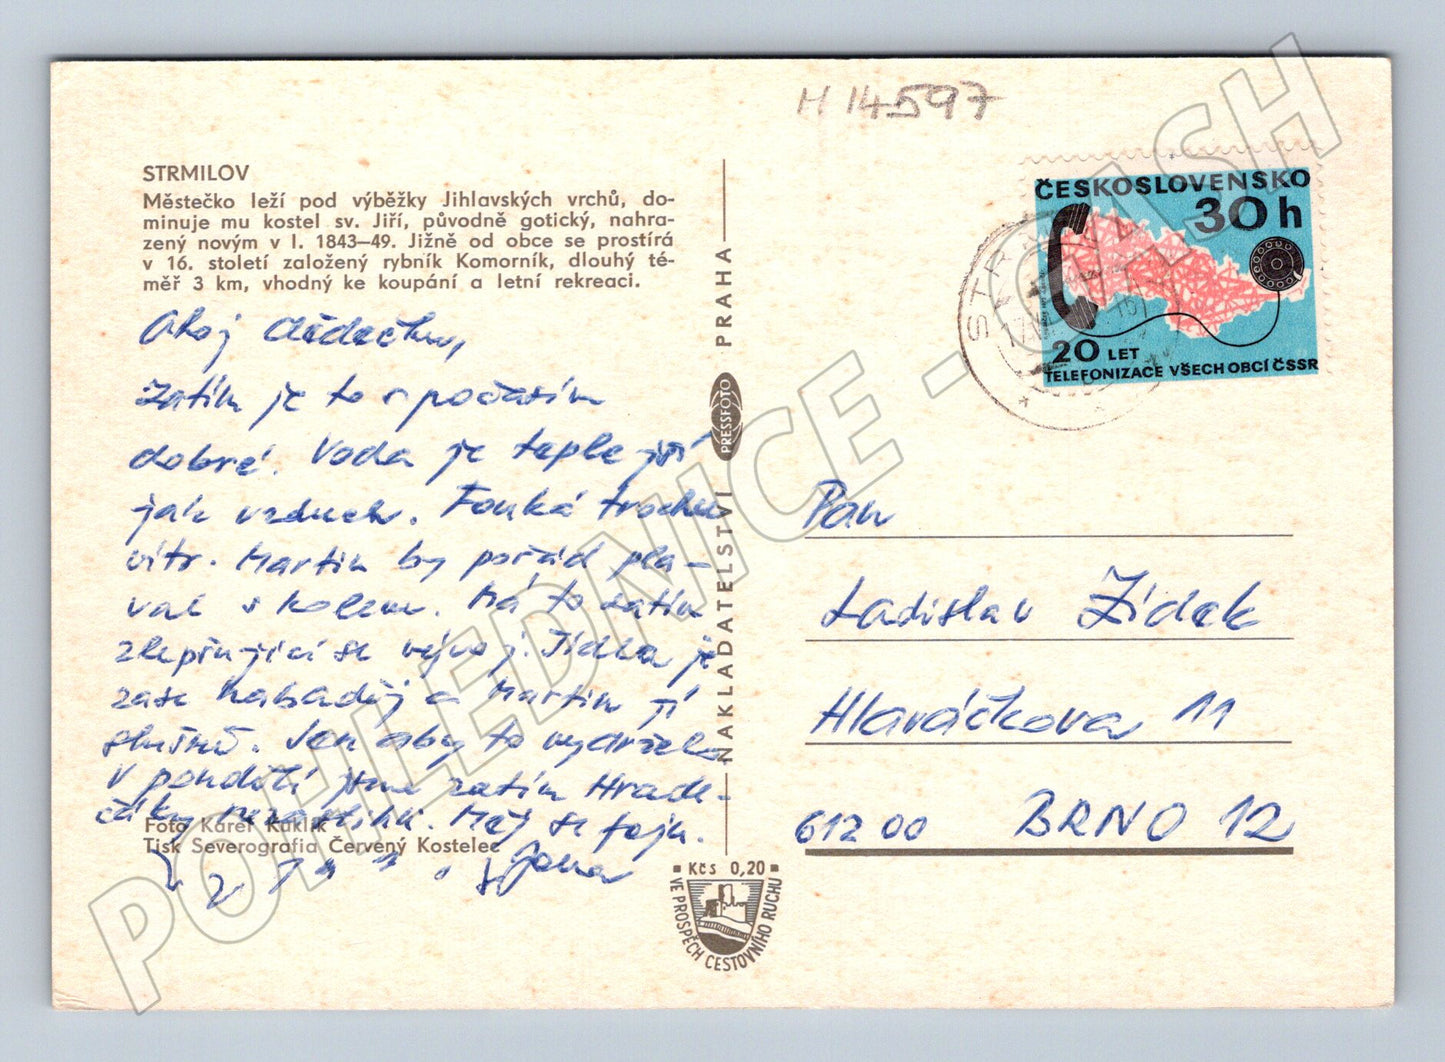 H 14597
STRMILOV
Městečko leží pod výběžky Jihlavských vrchů, do-
minuje mu kostel sv. Jiří, původně gotický, nahra-
zený novým v l. 1843–49. Jižně od obce se prostírá
v 16. století založený rybník Komorník, dlouhý té-
měř 3 km, vhodný ke koupání a letní rekreaci.
Ahoj dědečku,
Zatím je to s počasím
dobré. Voda je teplejší
jak vzduch. Fouká trochu
vítr. Martin by pořád pla-
val s kolem. Má to zatím
zlepšující se vývoj. Jídla je
zase habaděj a Martin jí
slušně. Jen aby to vydrželo
V pondělí jsme zatím Hrade-
čáky nezastihli. Měj se fajn.
Jana
Foto Karel Kuklík
Tisk Severografia Červený Kostelec
NAKLADATELSTVÍ PRESSFOTO PRAHA
Kčs 0,20
VE PROSPĚCH CESTOVNÍHO RUCHU
ČESKOSLOVENSKO
30 h
20 LET
TELEFONIZACE VŠECH OBCÍ ČSSR
Pan
Ladislav Žídek
Hlaváčkova 11
612 00 BRNO 12
POHLEDNICE - CASH